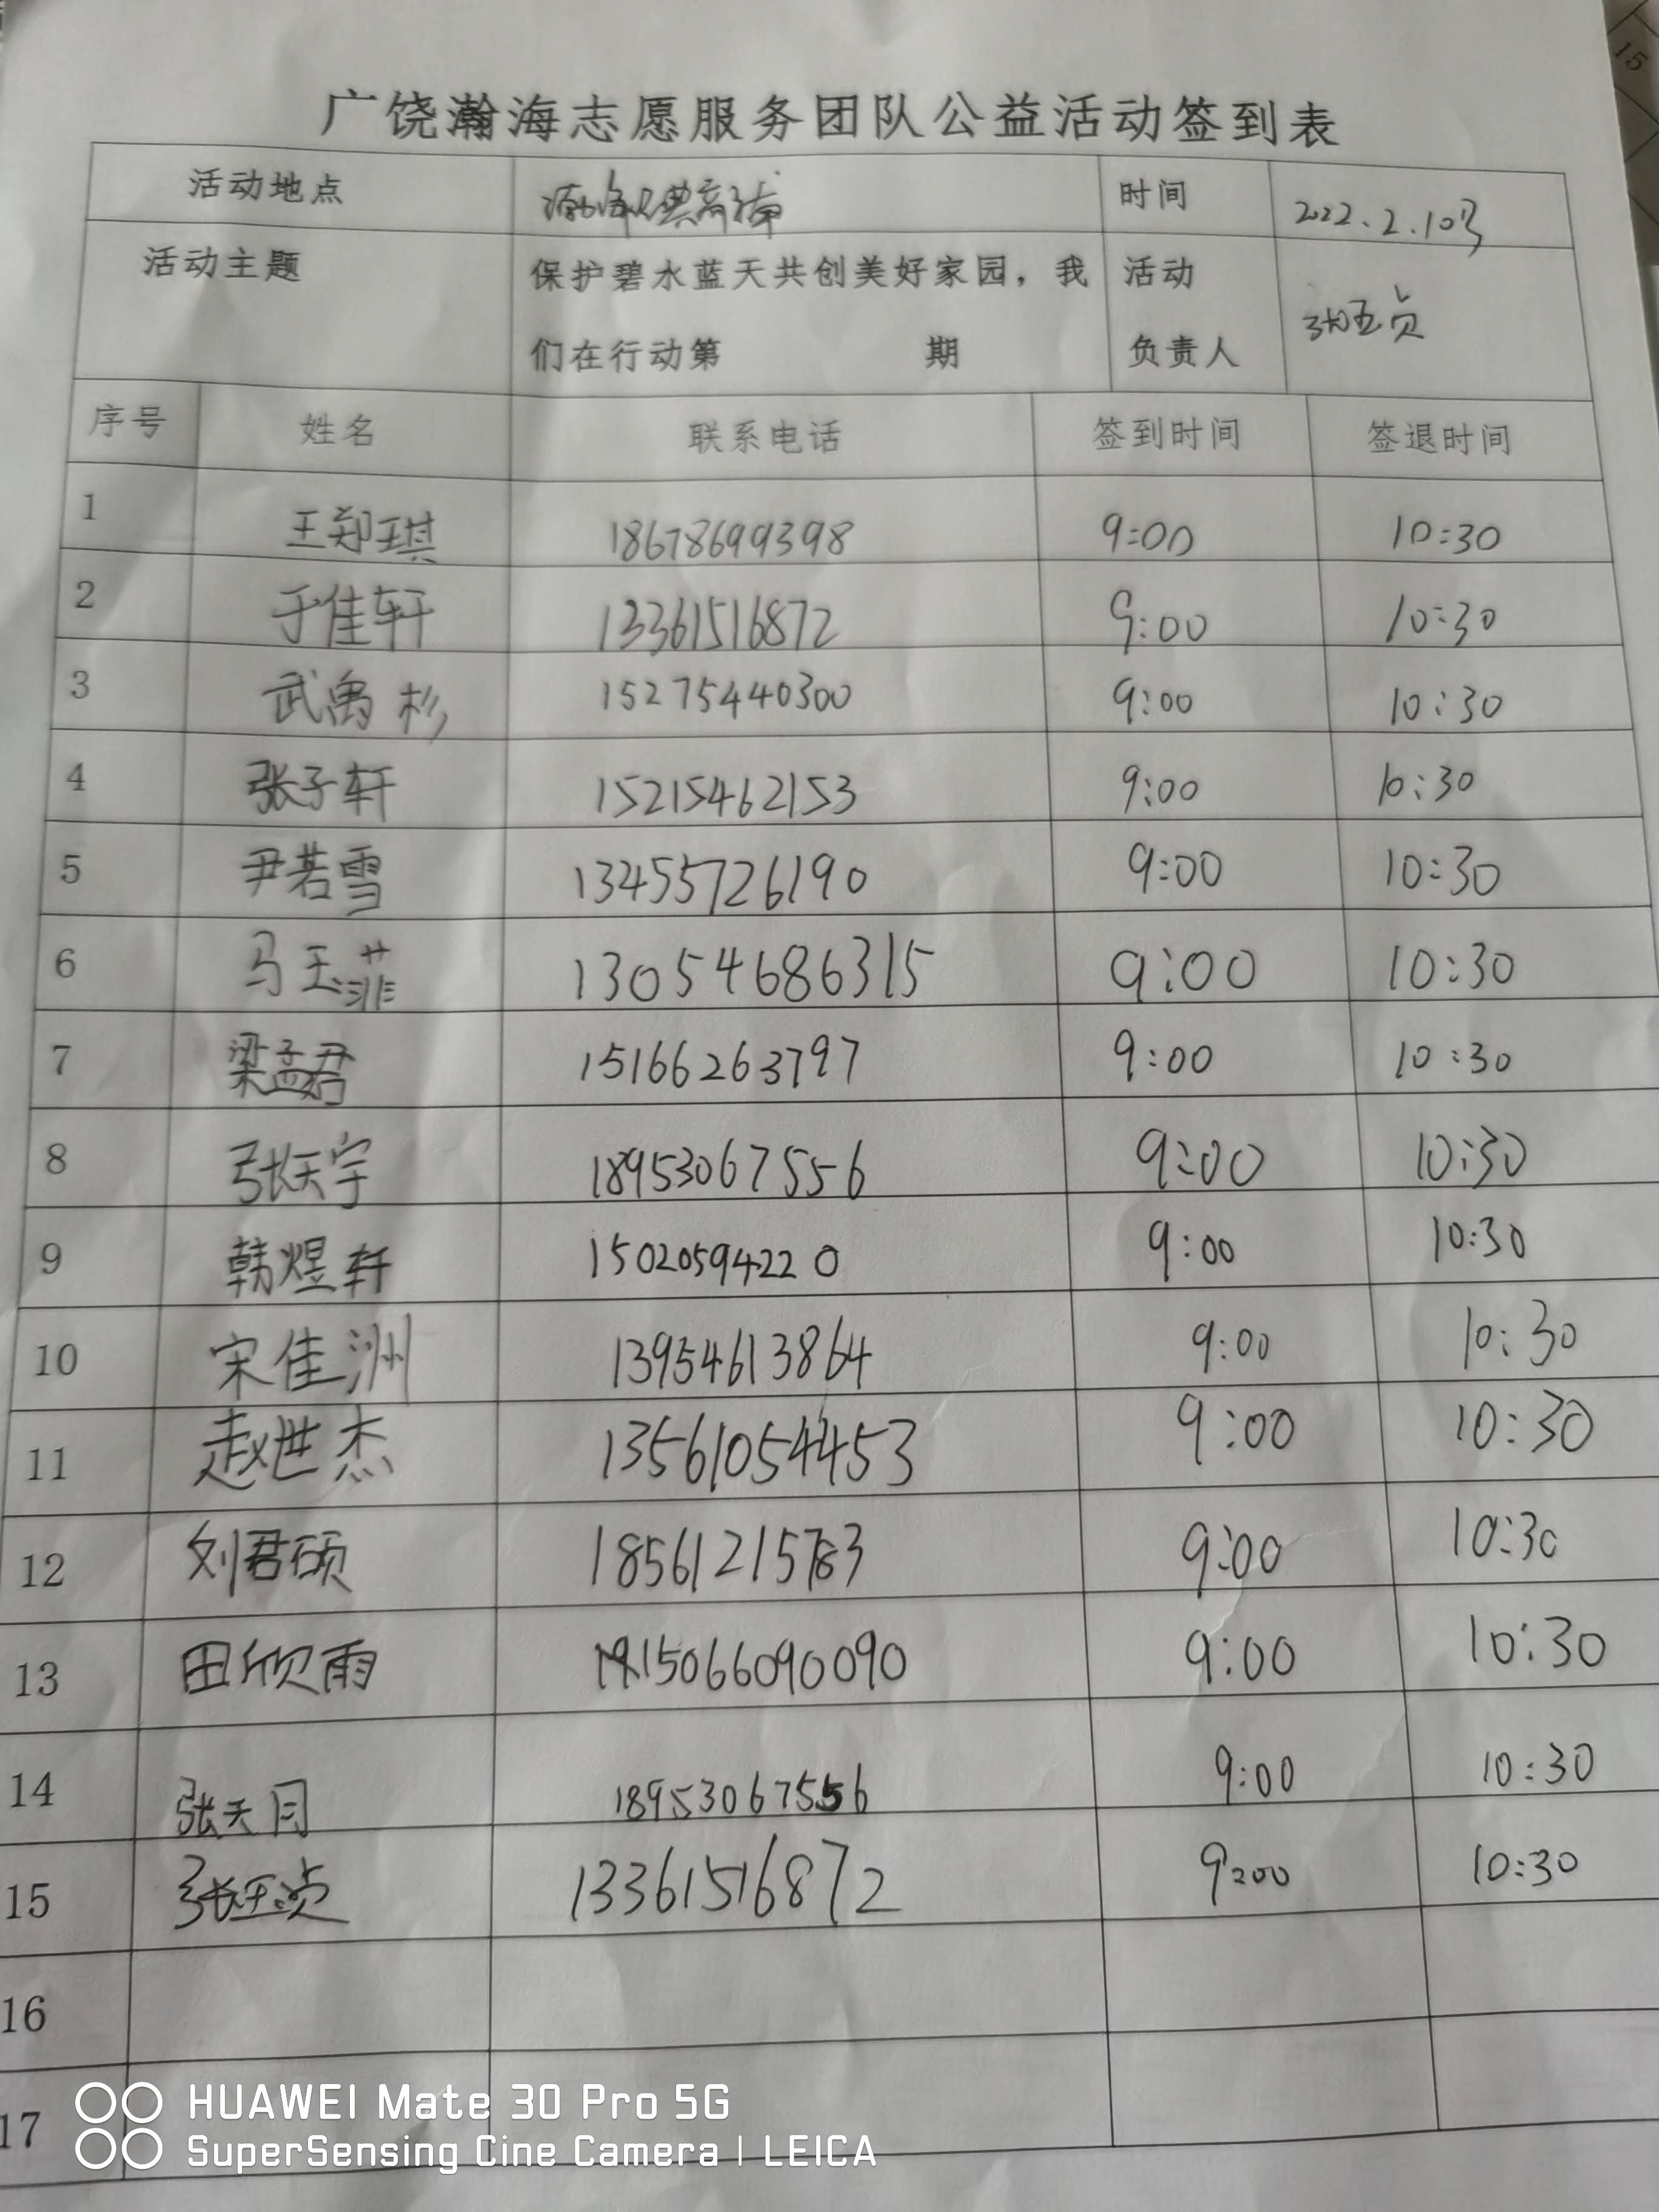 15
广饶瀚海志愿服务团队公益活动签到表
活动地点 时间 2022.2.10号
活动主题 保护碧水蓝天共创美好家园，我 活动
们在行动第 期 负责人 张玉贞
序号 姓名 联系电话 签到时间 签退时间
1 王郑琪 18678699398 9:00 10:30
2 于佳轩 13361516872 9:00 10:30
3 武禹杉 15275440300 9:00 10:30
4 张子轩 15215462153 9:00 10:30
5 尹若雪 13455726190 9:00 10:30
6 马玉菲 13054686315 9:00 10:30
7 梁孟君 15166263797 9:00 10:30
8 张天宇 18953067556 9:00 10:30
9 韩煜轩 15020594220 9:00 10:30
10 宋佳洲 13954613864 9:00 10:30
11 赵世杰 13561054453 9:00 10:30
12 刘君硕 18561215783 9:00 10:30
13 田欣雨 15066090090 9:00 10:30
14 张天月 18953067556 9:00 10:30
15 张玉贞 13361516872 9:00 10:30
16
17
HUAWEI Mate 30 Pro 5G
SuperSensing Cine Camera | LEICA